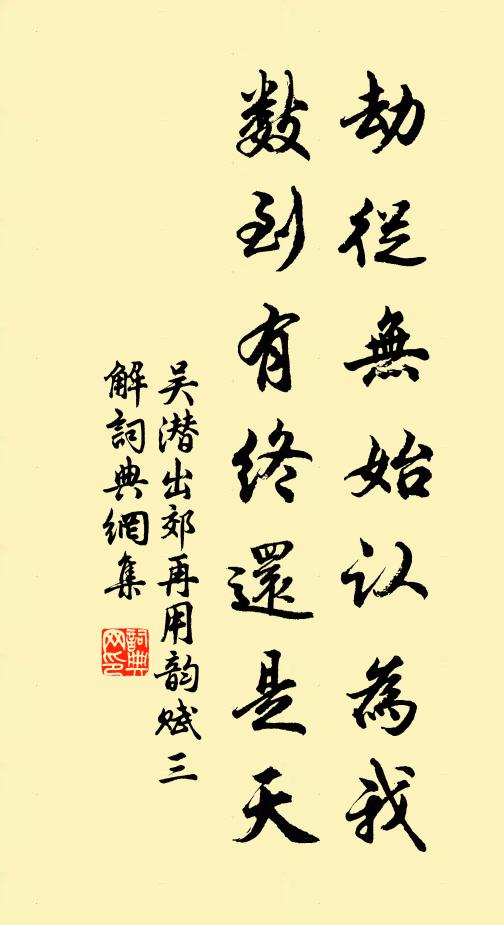 劫從無始认為我
数到有终還是天
吴潜出郊再用韵赋三
解詞典網集
詞典网印